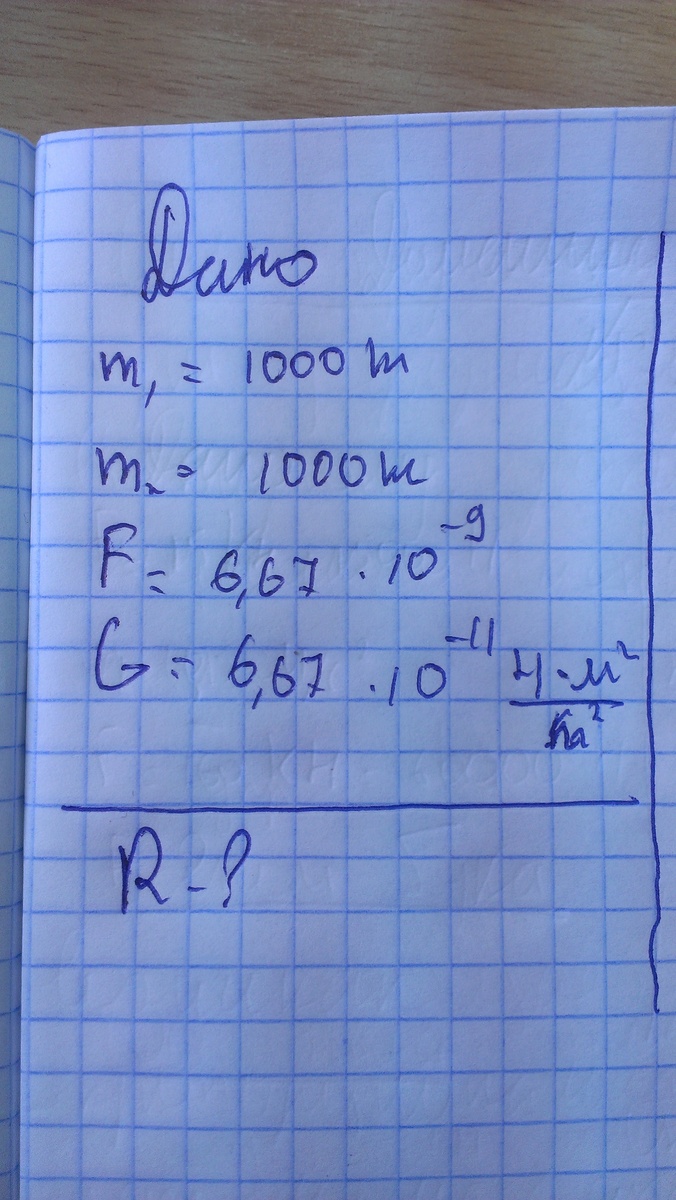 Дано
m₁ = 1000 т
m₂ = 1000 т
F = 6,67 · 10⁻⁹
G = 6,67 · 10⁻¹¹ Н·м²
кг²
R - ?